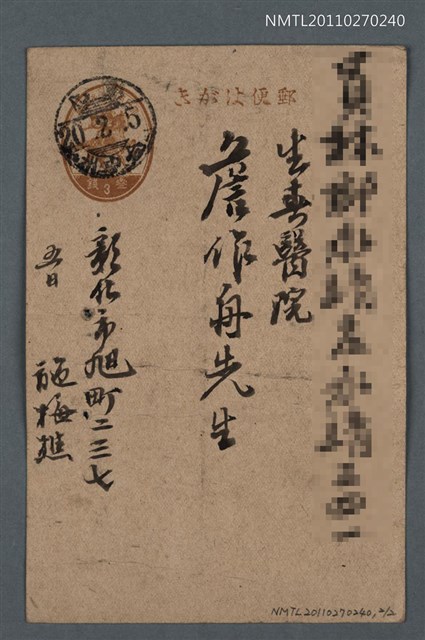 NMTL20110270240
郵便はがき
生春醫院
詹作舟先生
彰化市旭町二三七
施梅樵
五日
20.2.5
3
NMTL20110270240, 2/2